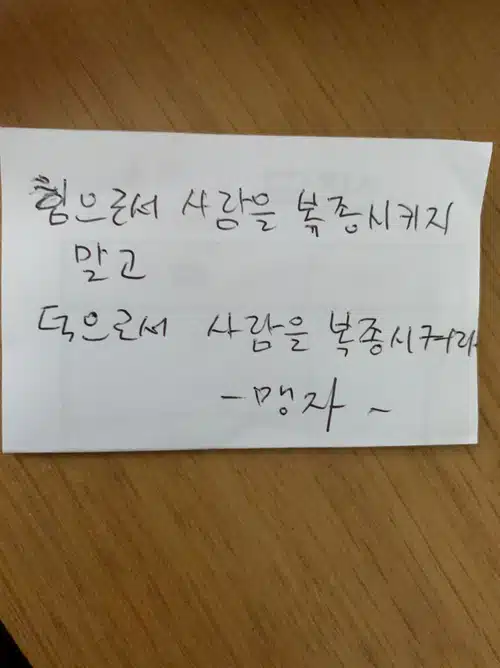 힘으로서 사람을 복종시키지
말고
덕으로서 사람을 복종시켜라
- 맹자 -